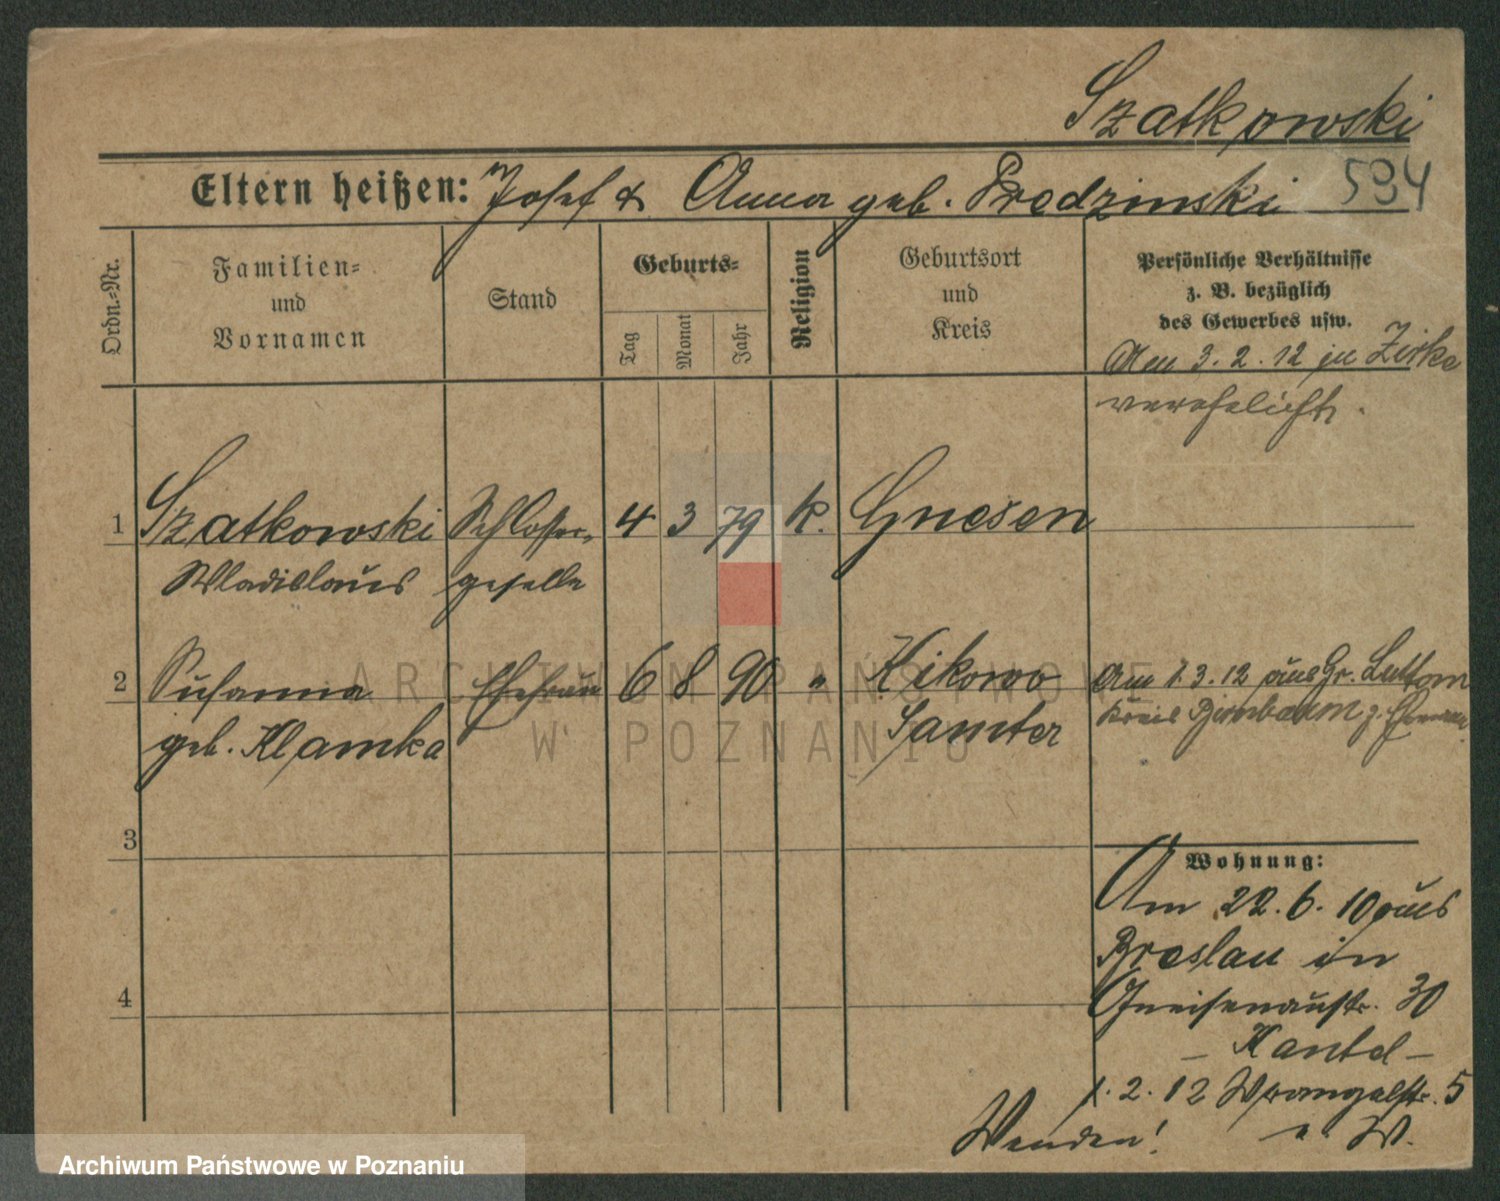 Szatkowski
594
Eltern heißen: Josef & Anna geb. Predzinski
Ordn.-Nr.
Familien-
und
Vornamen
Stand
Geburts-
Tag
Monat
Jahr
Religion
Geburtsort
und
Kreis
Persönliche Verhältnisse
z. B. bezüglich
des Gewerbes usw.
Am 3. 2. 12 zu Zirke
verehelicht.
1 Szatkowski Schlosser- 4 3 79 k. Gnesen
Wladislaus geselle
2 Susanna Ehefrau 6 8 90 " Kikowo
geb. Klamka Samter
Am 1. 3. 12 aus Gr. Luttom
Kreis Birnbaum z.
3
4
Wohnung:
Am 22. 6. 10 aus
Breslau in
Gneisenaustr. 30
- Kantel -
1. 2. 12 Wrangelstr. 5
Wenden! " W.
ARCHIWUM PAŃSTWOWE
W POZNANIU
Archiwum Państwowe w Poznaniu